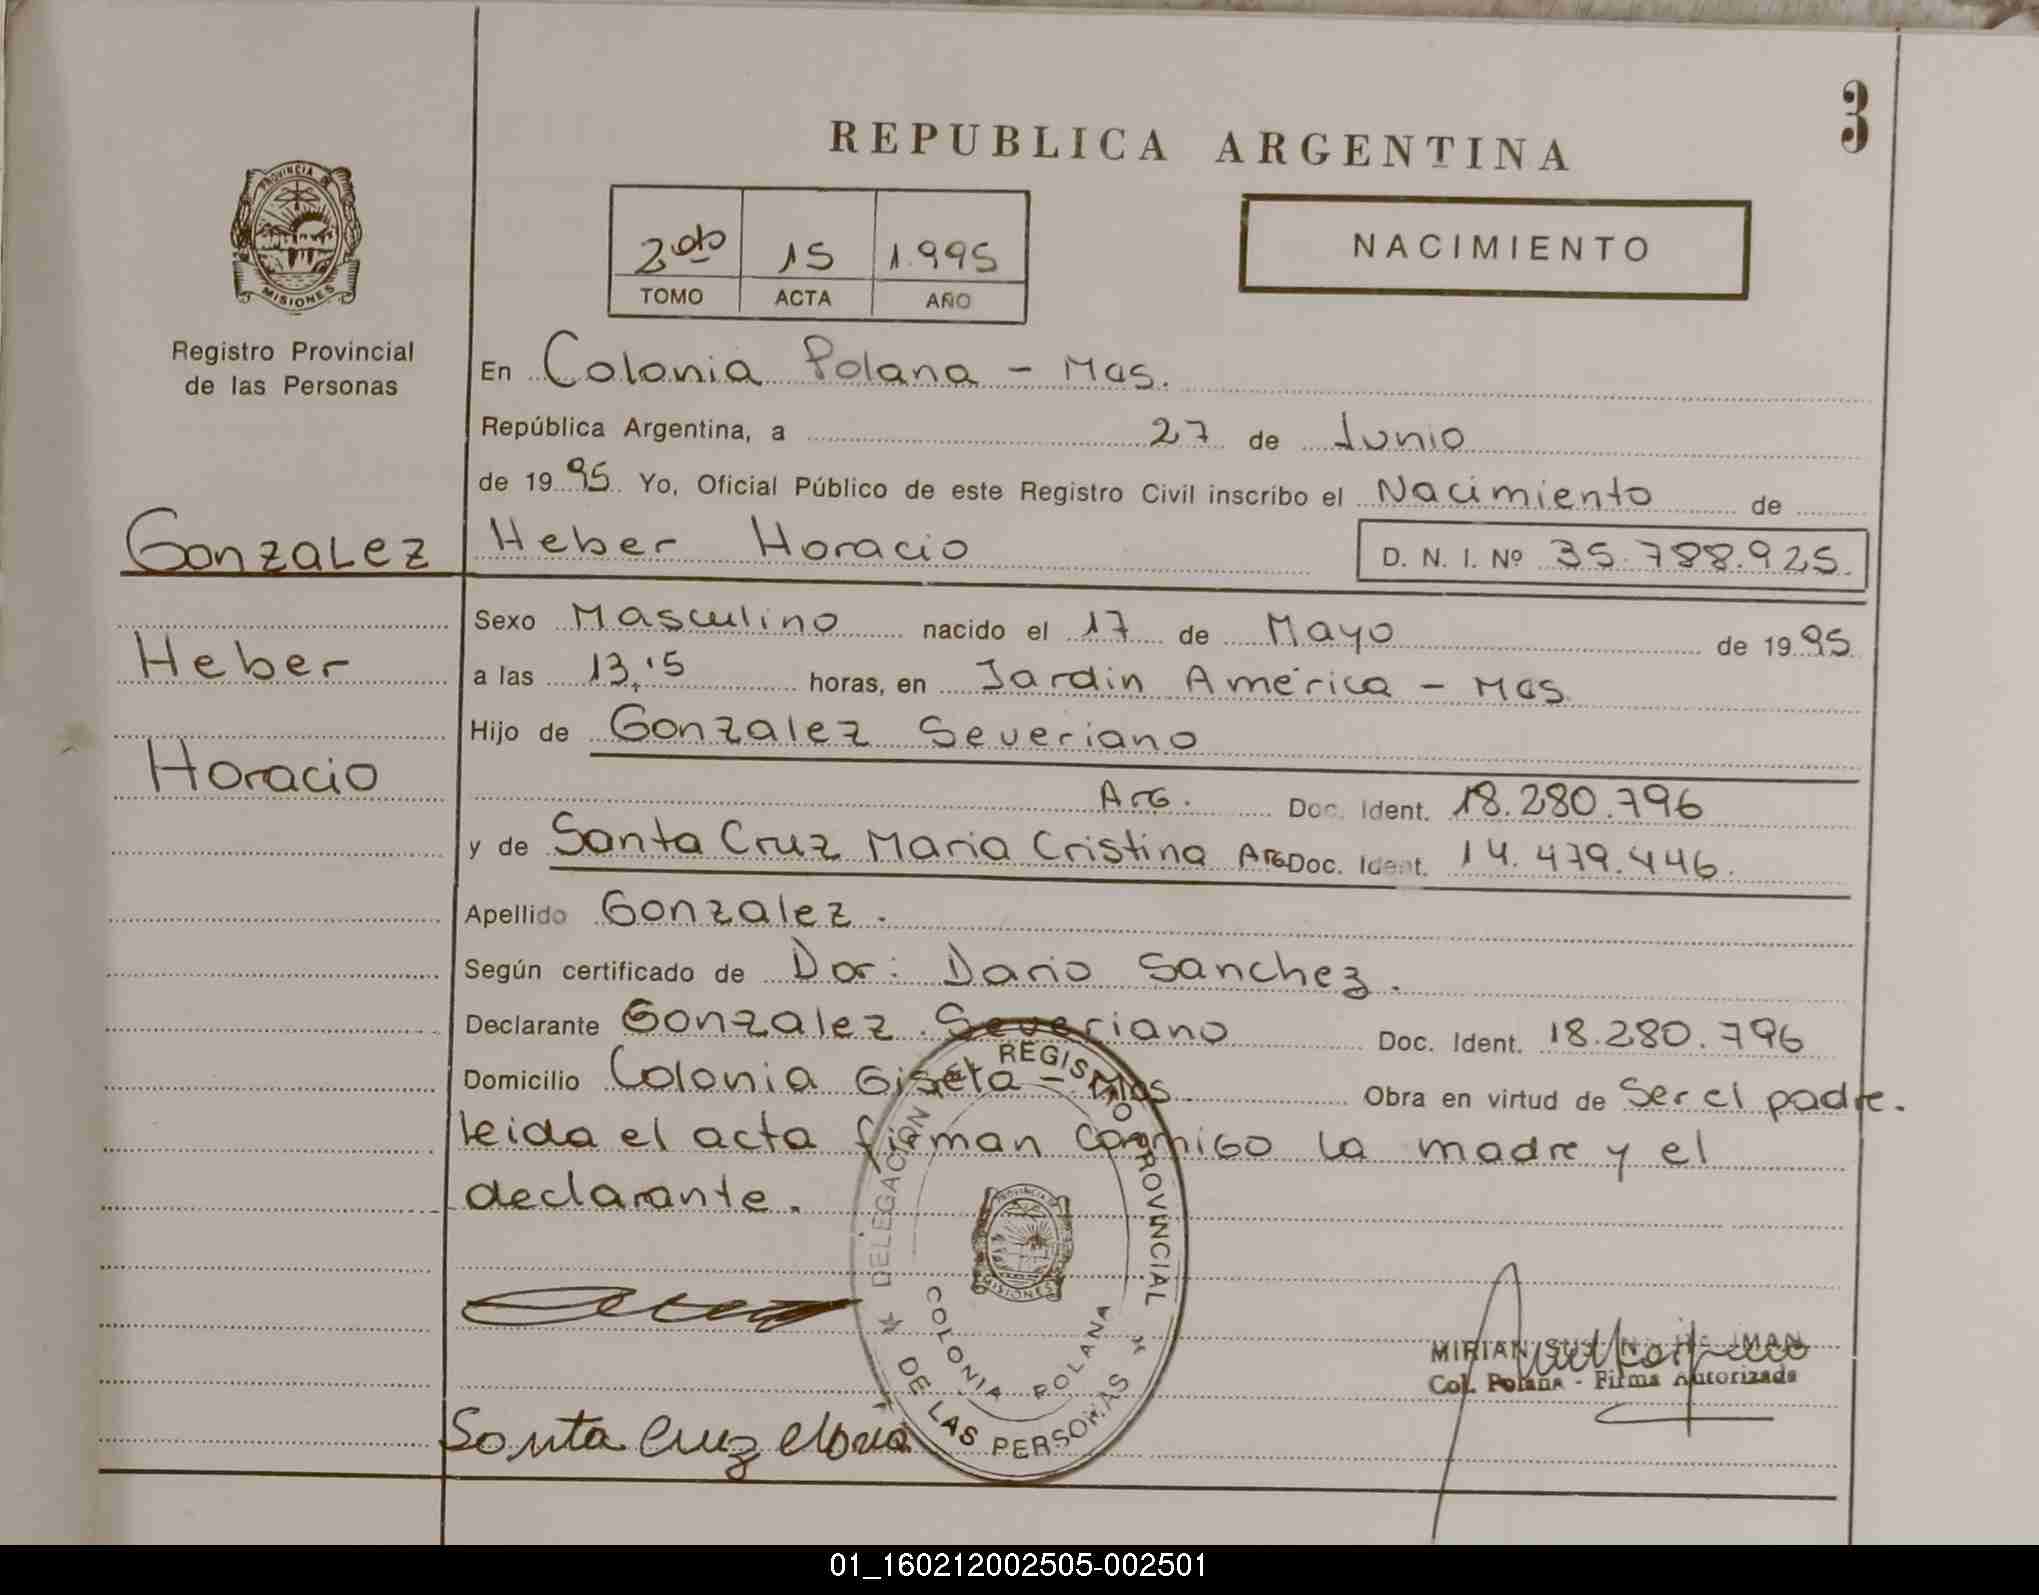 3
REPUBLICA ARGENTINA
PROVINCIA DE
MISIONES
Registro Provincial
de las Personas
2do 15 1.995
TOMO ACTA AÑO
NACIMIENTO
En Colonia Polana - Mns.
República Argentina, a 27 de Junio
de 1995 Yo, Oficial Público de este Registro Civil inscribo el Nacimiento de
Gonzalez Heber Horacio D. N. I. Nº 35.788.925.
Sexo Masculino nacido el 17 de Mayo de 1995
Heber
a las 13,15 horas, en Jardin América - Mns
Hijo de Gonzalez Severiano
Horacio
Arg. Doc. Ident. 18.280.796
y de Santa Cruz Maria Cristina Arg Doc. Ident. 14.479.446.
Apellido Gonzalez.
Según certificado de Dor: Dario Sanchez.
Declarante Gonzalez Severiano Doc. Ident. 18.280.796
Domicilio Colonia Giseta - Mns. Obra en virtud de Ser el padre.
leida el acta firman conmigo la madre y el
declarante.
DELEGACION REGISTRO PROVINCIAL
DE LAS PERSONAS
COLONIA POLANA
PROVINCIA DE
MISIONES
MIRIAN
Col. Polana - Firma Autorizada
Santa Cruz Maria
01_160212002505-002501